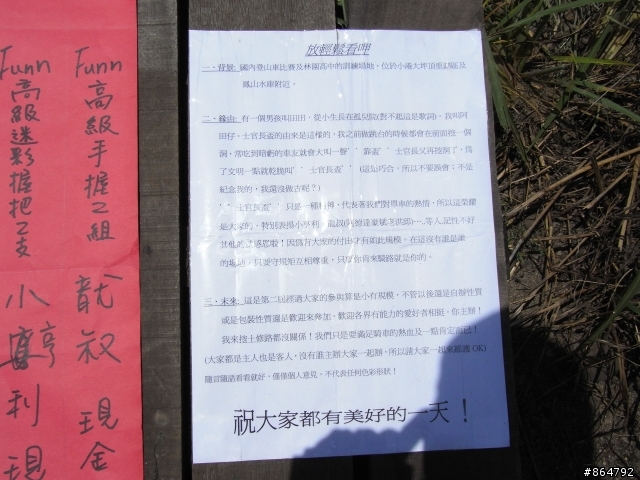 Funn
高級手握2組
龍叔
現金
Funn
高級迷影握把2支
小亨利
現
放輕鬆看呷
一、背景: 國內登山車比賽及林園高中的訓練場地，位於小港大坪頂
鳳山水庫附近。
二、緣由: 有一個男孩叫田田，從小生長在孤兒院(對不起這是歌詞)，我叫阿
田仔。士官長盃的由來是這樣的，我之前做跳台的時候都會在前面挖一個
洞，常吃到暗虧的車友就會大叫一聲 靠盃 士官長又再挖洞了，爲
了文明一點就乾脆叫 士官長盃 (這是巧合，所以不要誤會；不是
紀念我的，我還沒做古呢？)
士官長盃 只是一種精神，代表著我們對單車的熱情，所以這榮耀
是大家的，特別表揚小亨利、龍叔 等人,記性不好
因爲有大家的付出才有如此規模。在這沒有誰是誰
的場地，只要守規矩互相尊重，只要你肯來騎路就是你的。
三、未來: 這是第二屆經過大家的參與算是小有規模，不管以後還是自辦性質
或是包裝性質還是歡迎來參加。歡迎各界有能力的愛好者相挺，你主辦！
我來挖土修路都沒關係！我們只是要滿足騎車的熱血及一點肯定而已！
(大家都是主人也是客人，沒有誰主辦大家一起辦，所以請大家一起來維護 OK)
隨言隨語看看就好，僅僅個人意見，不代表任何色彩形狀！
祝大家都有美好的一天！
#864792